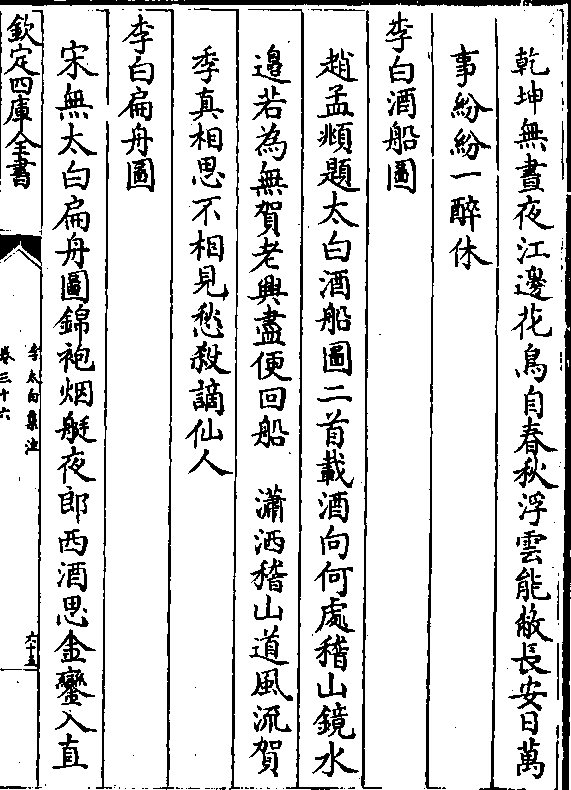 乾坤無晝夜江邊花鳥自春秋浮雲能蔽長安日萬
事紛紛一醉休
李白酒船圖
趙孟頫題太白酒船圖二首載酒向何處稽山鏡水
邊若為無賀老興盡便回船　瀟洒稽山道風流賀
季真相思不相見愁殺謫仙人
李白扁舟圖
宋無太白扁舟圖錦袍烟艇夜郎西酒思金鑾入直
欽定四庫全書
李太白集注
卷三十六
六十五